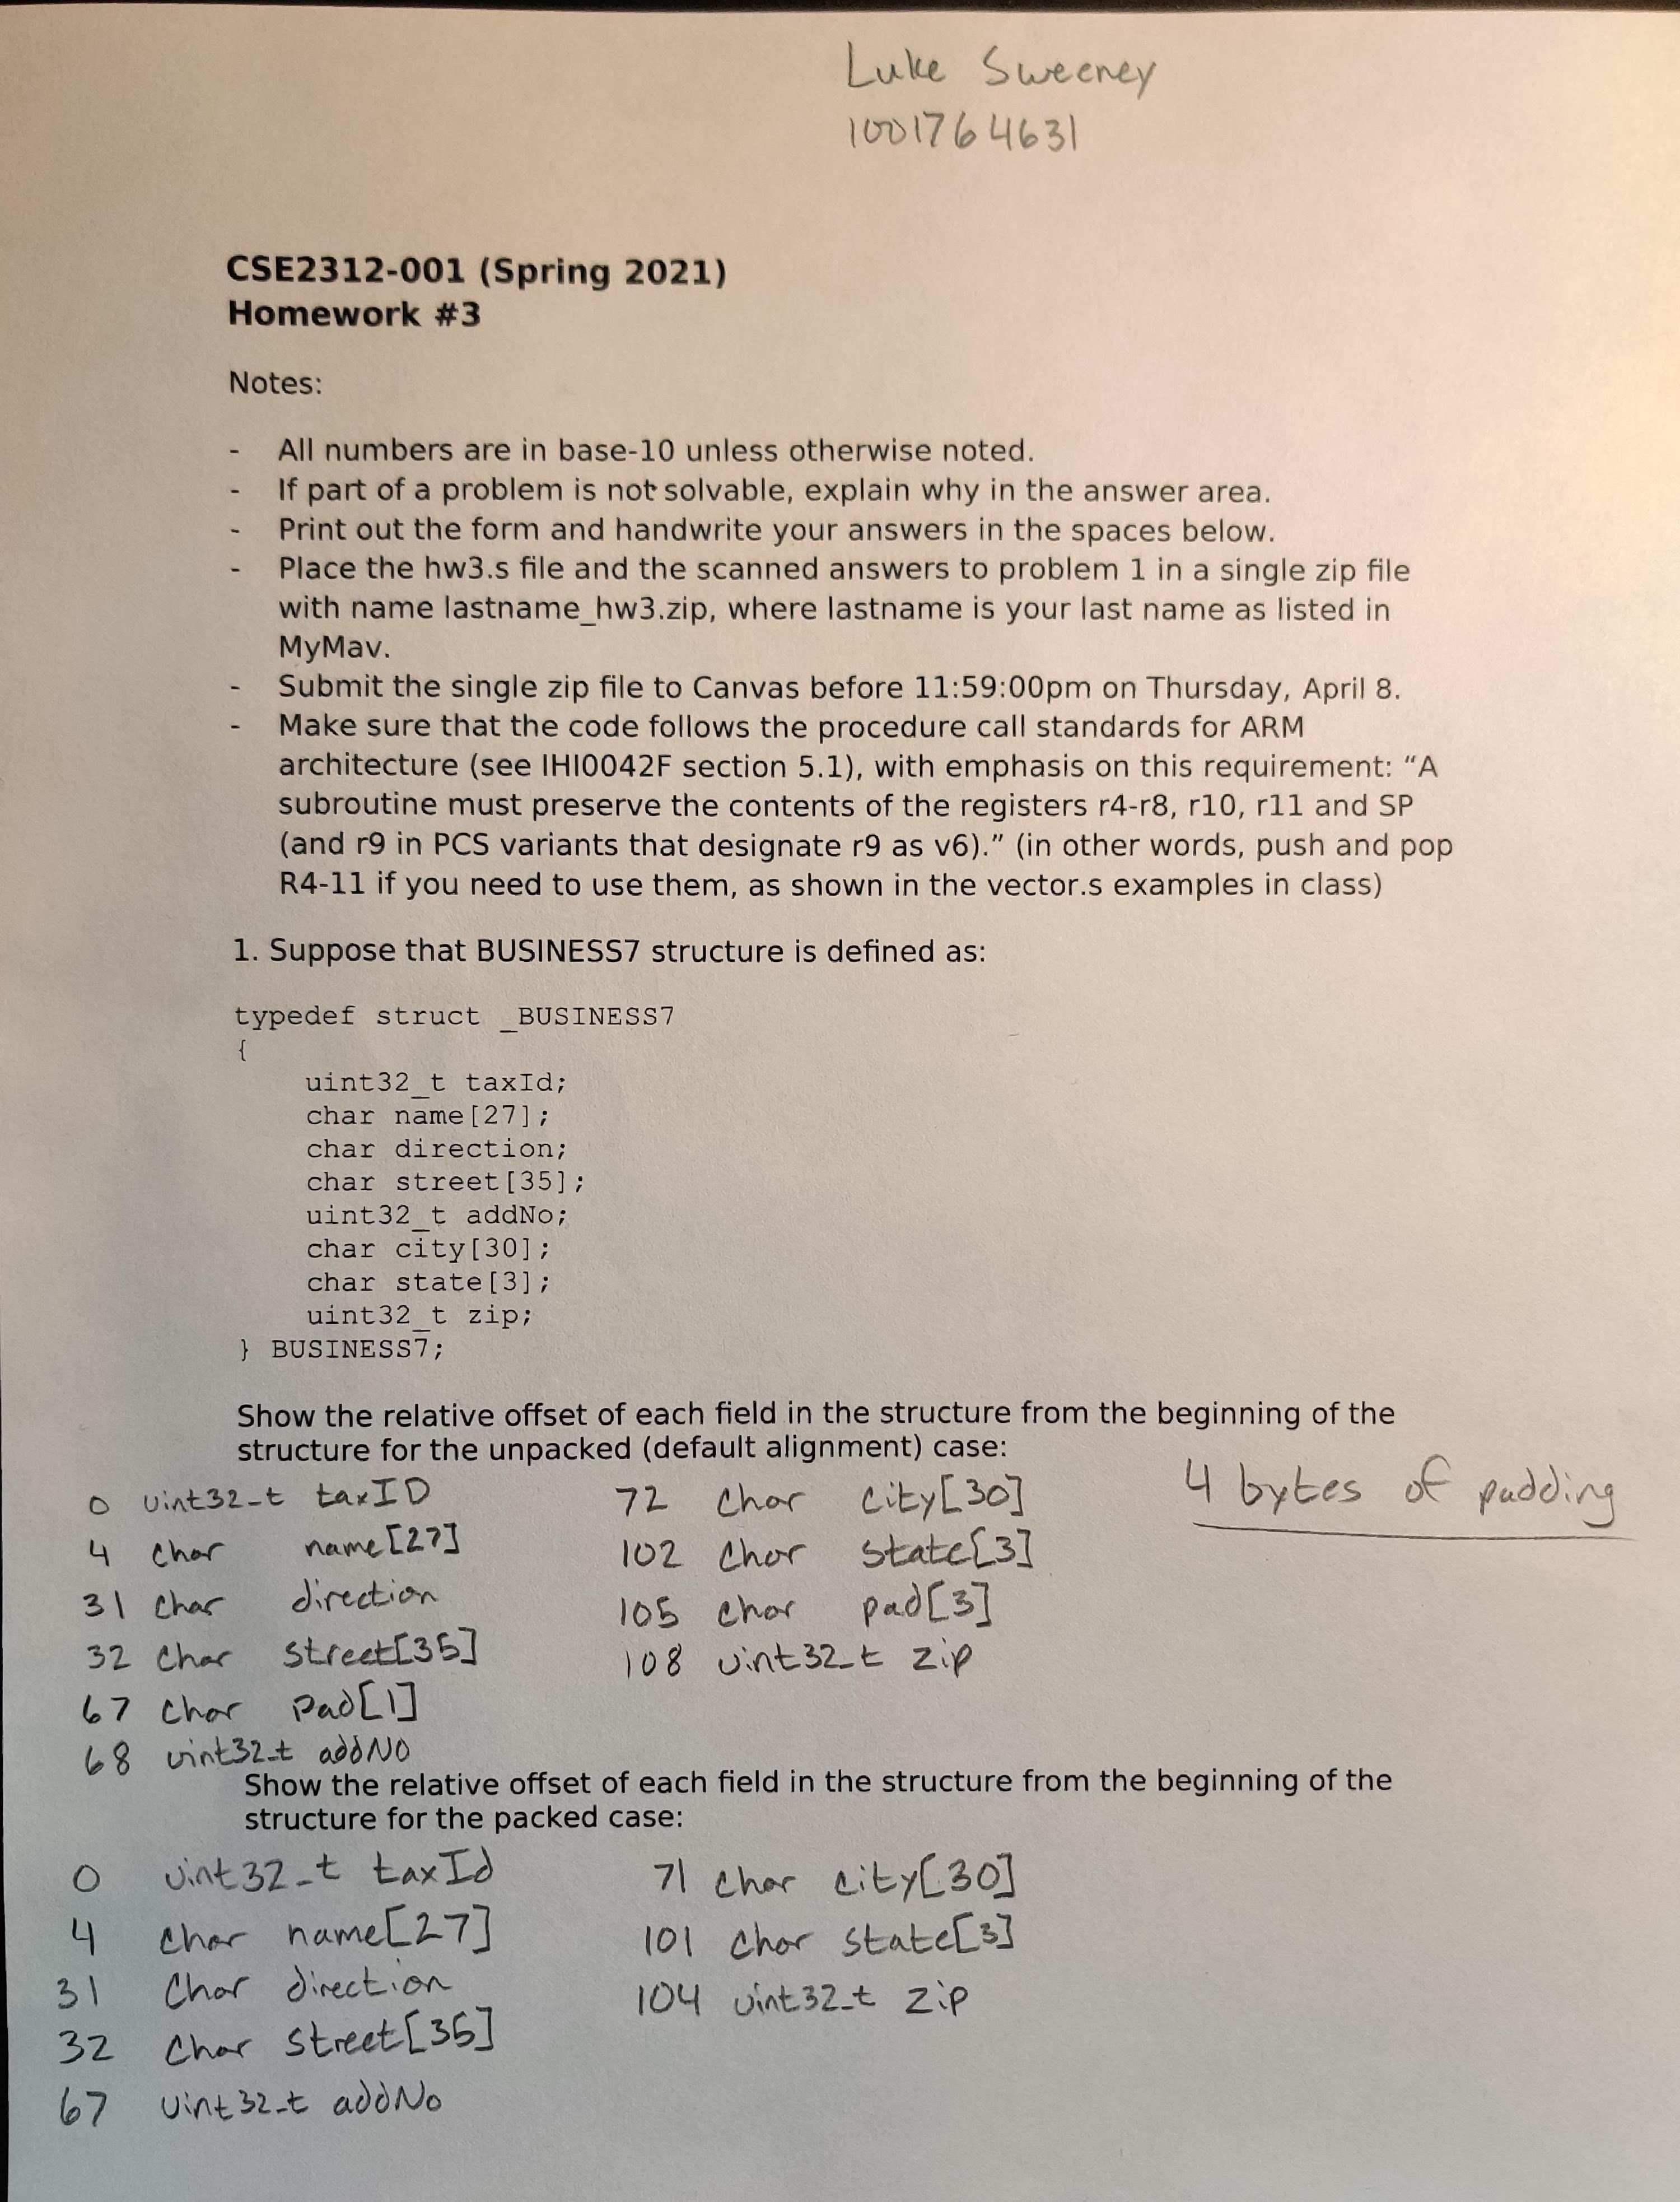 Luke Sweeney
1001764631
CSE2312-001 (Spring 2021)
Homework #3
Notes:
- All numbers are in base-10 unless otherwise noted.
- If part of a problem is not solvable, explain why in the answer area.
- Print out the form and handwrite your answers in the spaces below.
- Place the hw3.s file and the scanned answers to problem 1 in a single zip file
with name lastname_hw3.zip, where lastname is your last name as listed in
MyMav.
- Submit the single zip file to Canvas before 11:59:00pm on Thursday, April 8.
- Make sure that the code follows the procedure call standards for ARM
architecture (see IHI0042F section 5.1), with emphasis on this requirement: “A
subroutine must preserve the contents of the registers r4-r8, r10, r11 and SP
(and r9 in PCS variants that designate r9 as v6).” (in other words, push and pop
R4-11 if you need to use them, as shown in the vector.s examples in class)
1. Suppose that BUSINESS7 structure is defined as:
typedef struct _BUSINESS7
{
uint32_t taxId;
char name[27];
char direction;
char street[35];
uint32_t addNo;
char city[30];
char state[3];
uint32_t zip;
} BUSINESS7;
Show the relative offset of each field in the structure from the beginning of the
structure for the unpacked (default alignment) case:
0 uint32_t taxID
4 char name[27]
31 char direction
32 char street[35]
67 char pad[1]
68 uint32_t addNO
72 char city[30]
102 char state[3]
105 char pad[3]
108 uint32_t zip
4 bytes of padding
Show the relative offset of each field in the structure from the beginning of the
structure for the packed case:
0 uint32_t taxId
4 char name[27]
31 char direction
32 char street[35]
67 uint32_t addNo
71 char city[30]
101 char state[3]
104 uint32_t zip